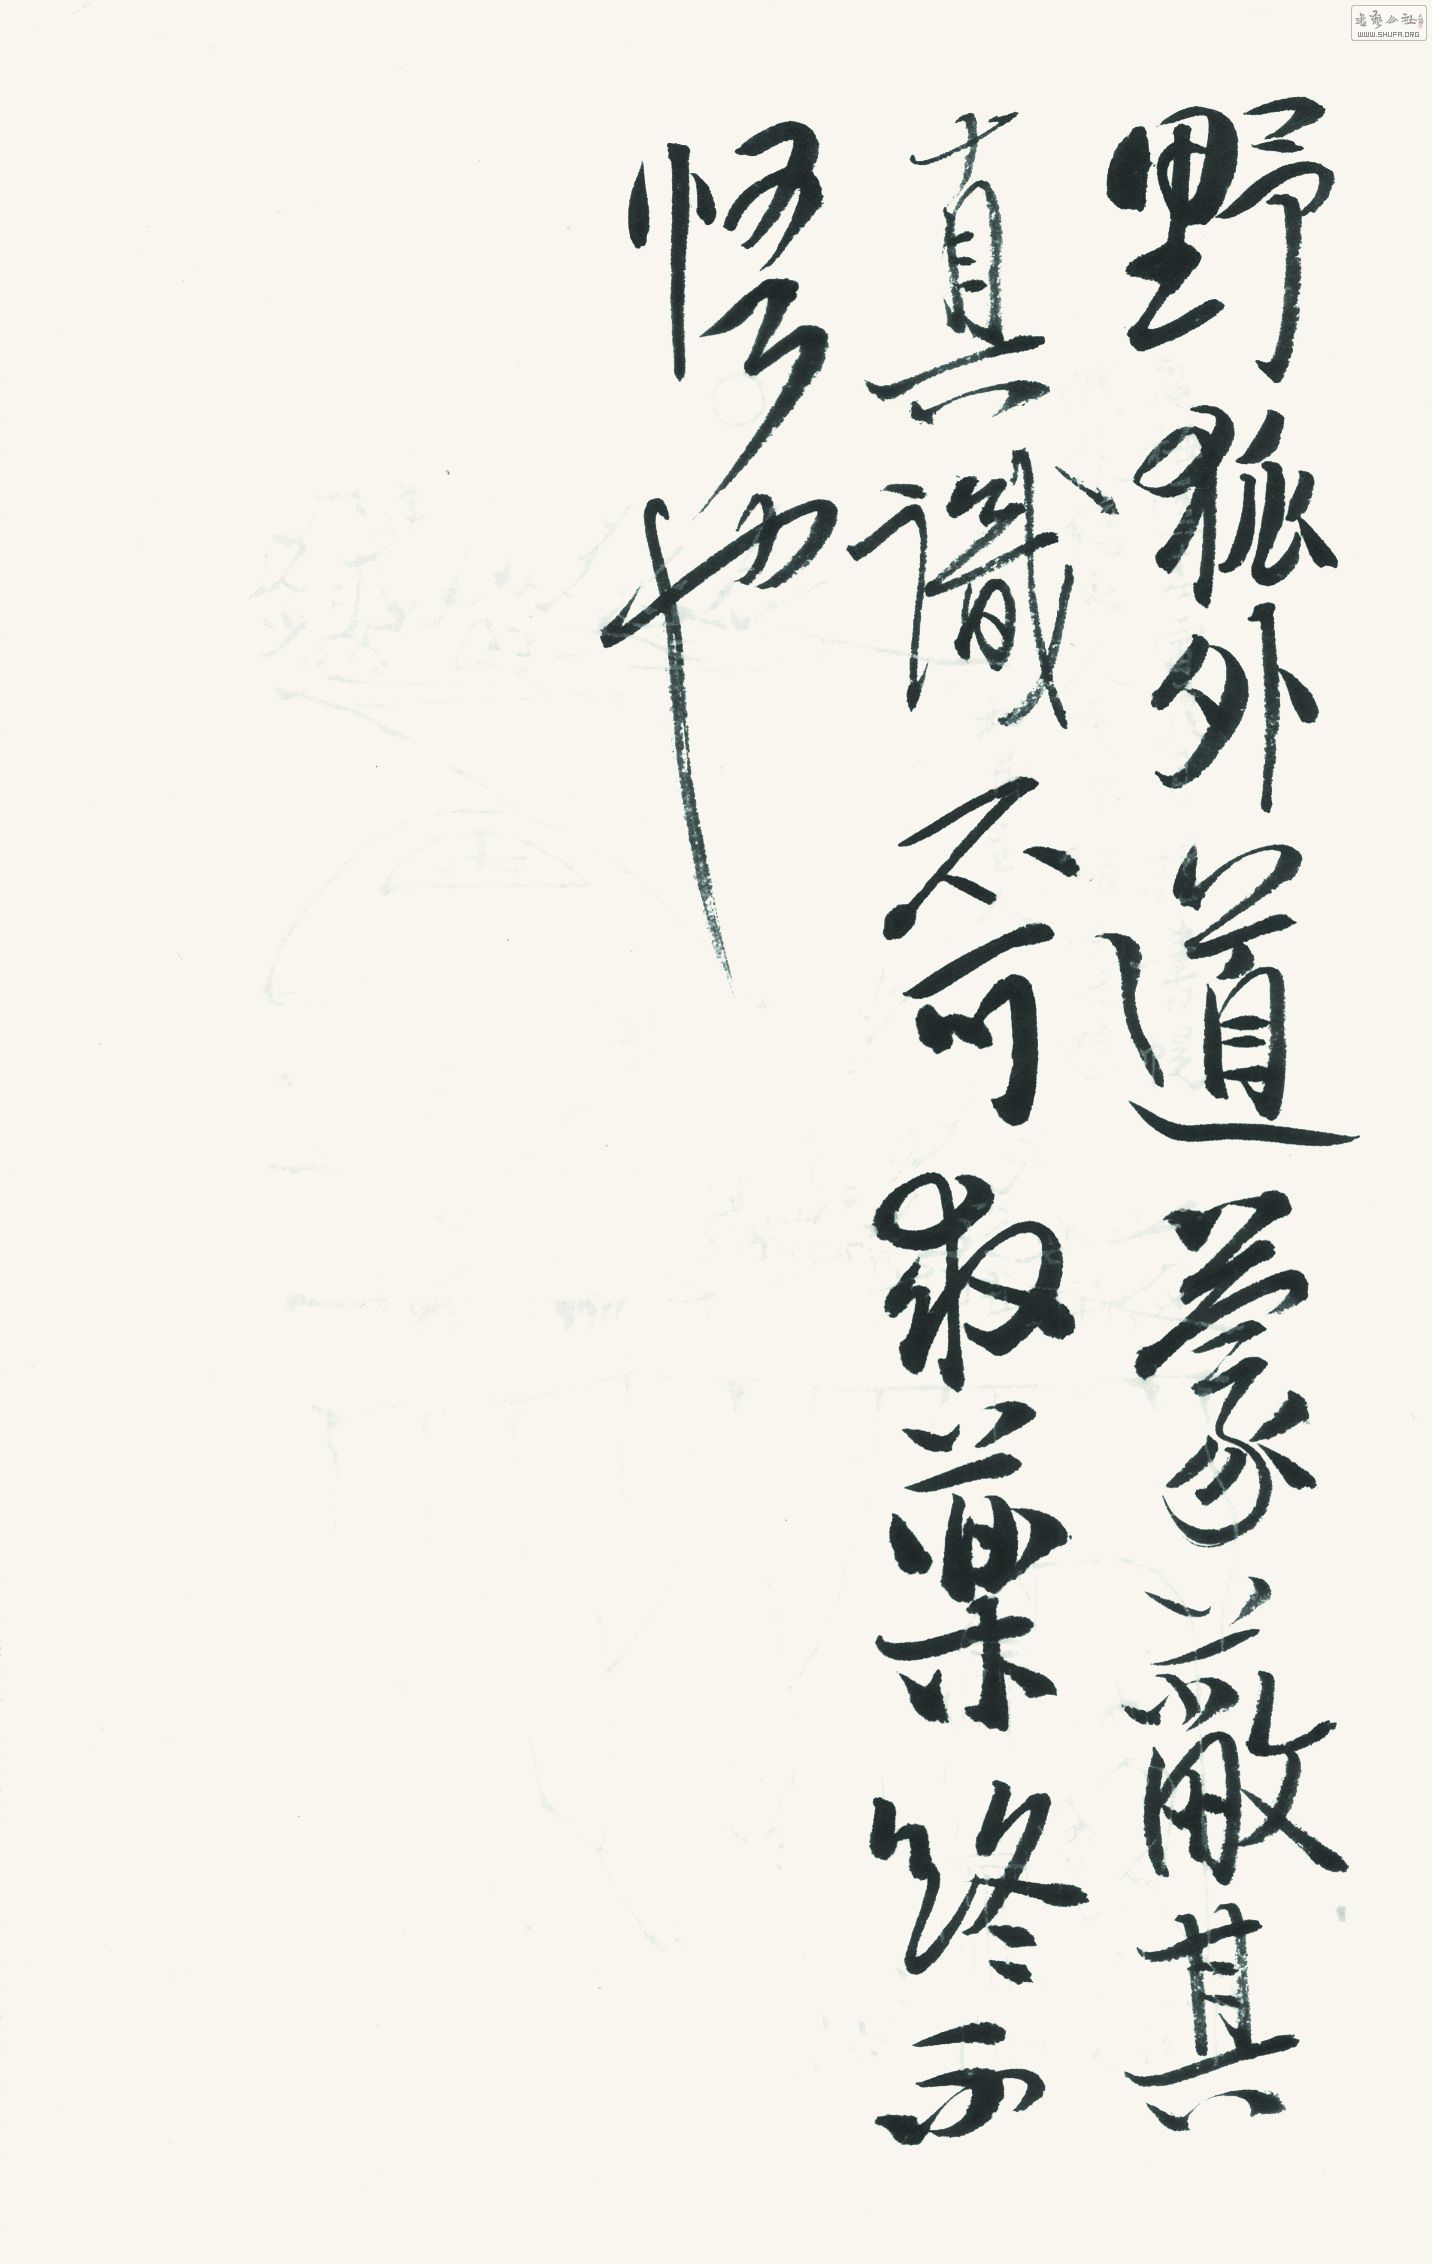 野狐外道蒙蔽其
真識不可救藥終不
悟也
書藝公社
WWW.SHUFA.ORG